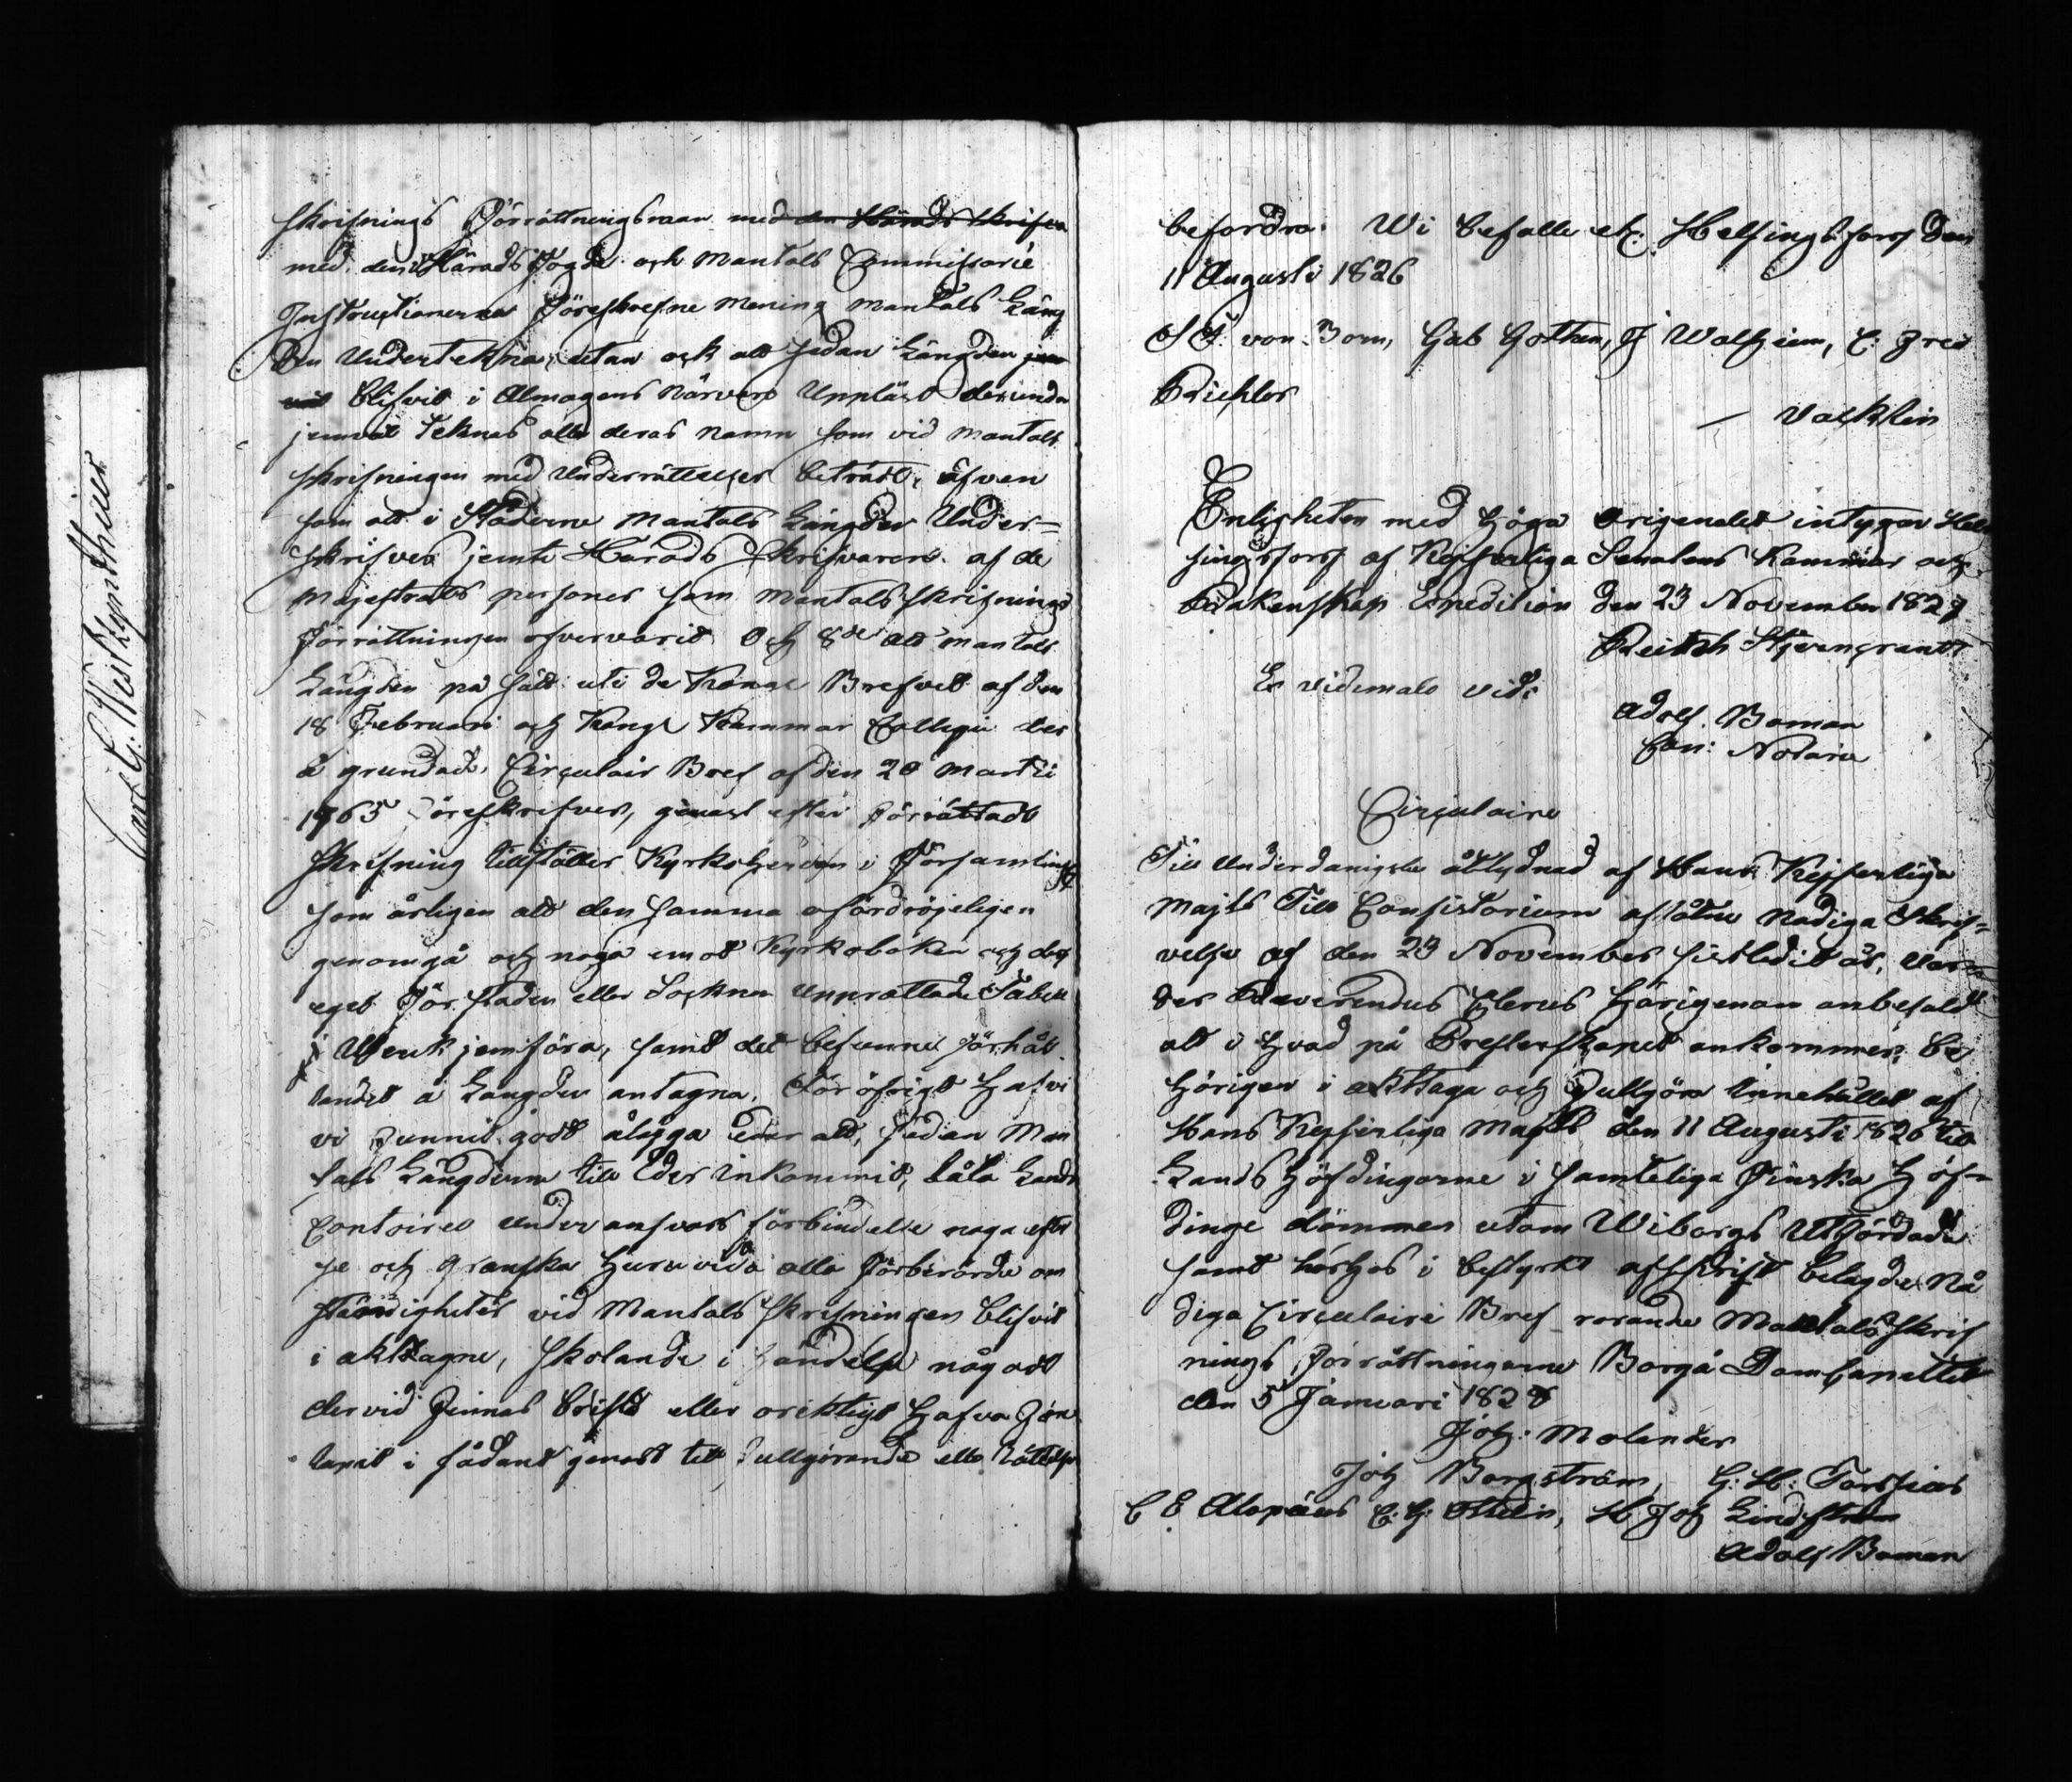 skrifnings Förrättningsman med den Härads Skrifva
med den Härads Fogde och Mantals Commissarie
Instructionerna Föreskrefne Mening Mantals Läng
den Underteknar, utan ock att sedan Längden jem
väl blifvit i Almogens Närvaro Uppläst derunder
jemväl teknas alla deras namn som vid Mantals
skrifningen med Underrättelser beträdt, äfven
som att i Städerne Mantals Längder Under-
skrifves jemte Härads Skrifvaren af de
Majestrats personer som Mantalsskrifnings
Förrättningen öfvervarit. Och 8de att Mantals
Längden på sätt uti de Kongl Brefvet af den
18 Februari och Kongl Kammar Collegii der
å grundade Circulair Bref af den 20 Martii
1765 Föreskrifves, genast efter Förrättade
Skrifning tillställer Kyrkoherden i Församling
som årligen att den samma ofördröjeligen
genomgå och noga emot Kyrkoboken och des
eget För Staden eller Soknen Upprättade Tabell
Verk jemföra, samt det befunne Förhål
landet å Längden antagna. För öfrigt Hafve
vi Funnit godt ålägga Eder att, sedan Man
tals Längderne till Eder inkommit, låta Lands
Contoiret under ansvars förbindelse noga efter
se och Granska Huruvida alla Förberörde om
ständigheter vid Mantals Skrifningen blifvit
i akttagne, Skolande i händelse något
dervid Finnas brista eller oriktigt Hafva För
lupit i sådant genast till Fullgörande eller Rättelse
befordra. Wi befalle etc. Helsingfors den
11 Augusti 1826
S F von Born, Gab Gothen, J Walheim, C: Fred
Richter
— Valklin
Enligheten med Höga Originalet intygar Hel
singfors af Kejserliga Senatens Kammar och
Räkenskap Expedition den 23 November 1827
Reinh Stjerngrantz
Ex vidimato vidi
Adolf. Boman
Con: Notarie
Circulaire
Till Underdånigste åtlydnad af Hans Kejserliga
Majts Till Consistorium aflåtne Nådiga Skrif=
velse af den 23 November sistledit år, Var
der Reverendus Clerus Härigenom anbefald
att i Hvad på Presterskapet ankommer, be
hörigen i akttaga och Fullgöra innehållet af
Hans Kejserliga Majts den 11 Augusti 1826 till
Lands Höfdingarne i samteliga Finska Höf-
dinge dömmen utom Wiborgs Utfärdade
samt härhos i bestyrkt afskrift belagde Nå
diga Circulaire Bref rörande Mantals Skrif
nings Förrättningarne Borgå Domcapitlet
den 5 Januari 1828
Joh: Molander
Joh Borgström, G: H: Forssius
C E Alopæus C: G: Ahlin, H Joh Lindström
Adolf Boman
Carl G. Westzynthius